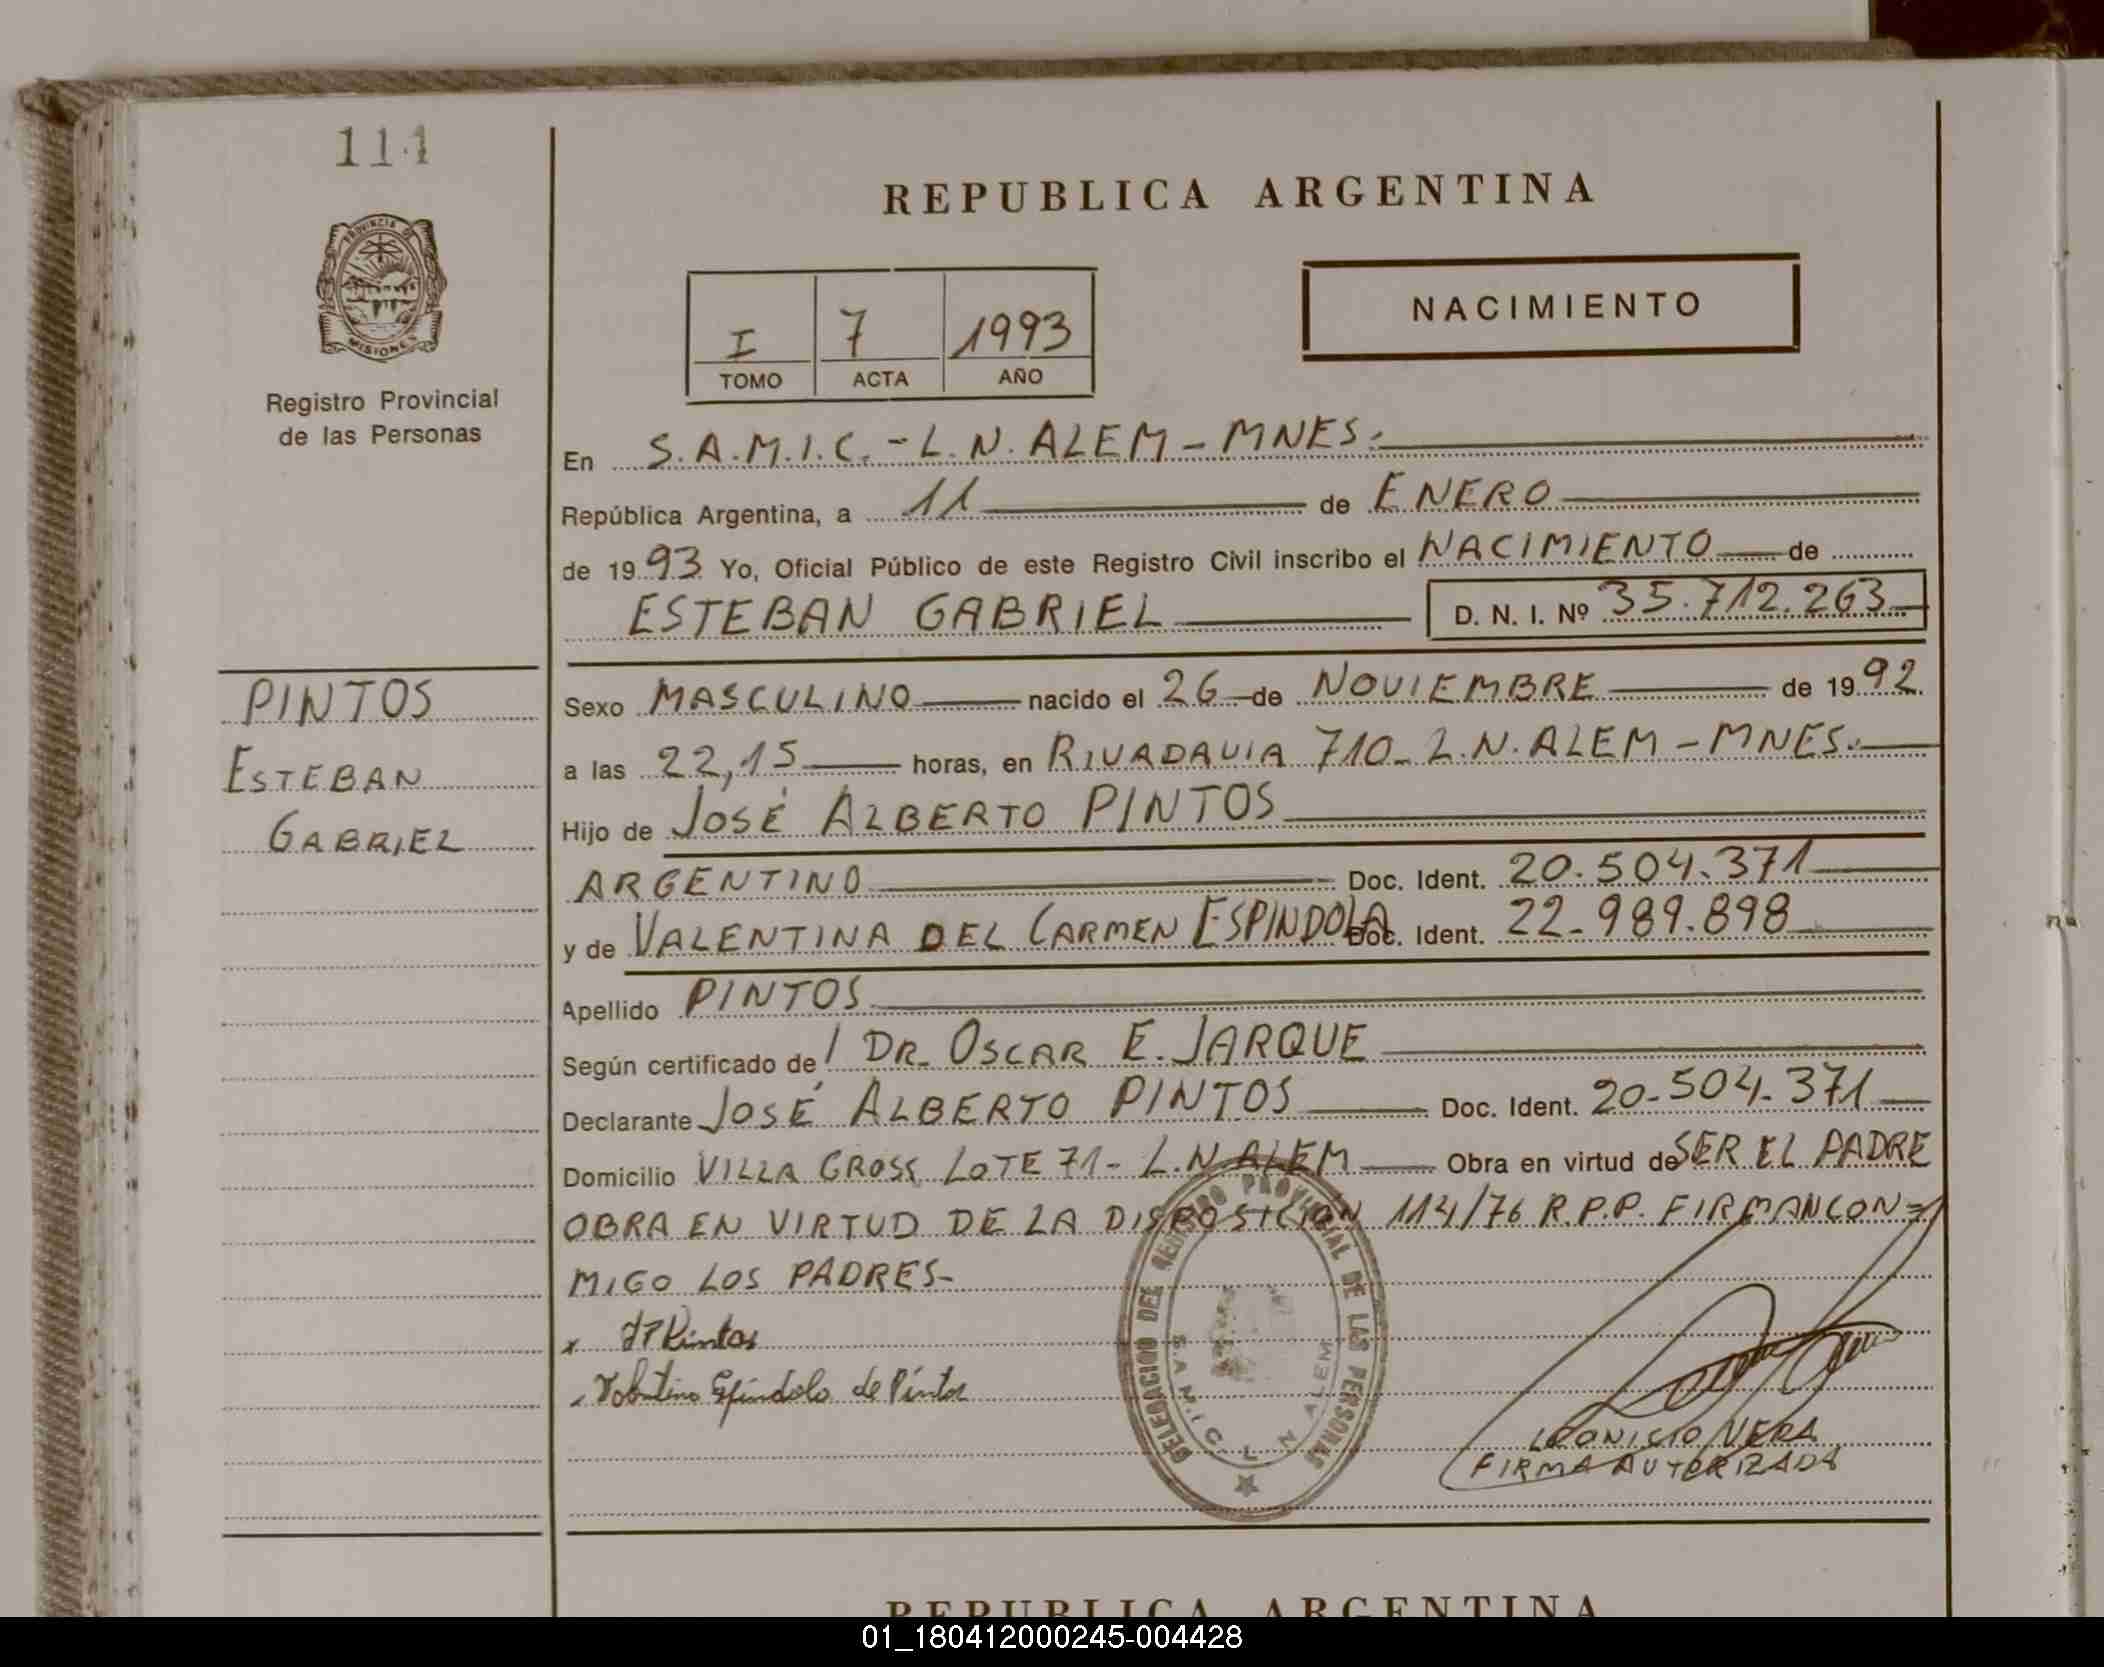 111
PROVINCIA DE
MISIONES
Registro Provincial
de las Personas
PINTOS
ESTEBAN
GABRIEL
REPUBLICA ARGENTINA
I 7 1993
TOMO ACTA AÑO
NACIMIENTO
En S.A.M.I.C. - L.N. ALEM - MNES.
República Argentina, a 11 de ENERO
de 1993 Yo, Oficial Público de este Registro Civil inscribo el NACIMIENTO de
ESTEBAN GABRIEL D. N. I. Nº 35.712.263
Sexo MASCULINO nacido el 26 de NOVIEMBRE de 1992
a las 22,15 horas, en RIVADAVIA 710 - L.N. ALEM - MNES.
Hijo de JOSÉ ALBERTO PINTOS
ARGENTINO Doc. Ident. 20.504.371
y de VALENTINA DEL CARMEN ESPINDOLA Doc. Ident. 22-989.898
Apellido PINTOS
Según certificado de DR. OSCAR E. JARQUE
Declarante JOSÉ ALBERTO PINTOS Doc. Ident. 20-504.371
Domicilio VILLA GROSS LOTE 71 - L.N. ALEM Obra en virtud de SER EL PADRE
OBRA EN VIRTUD DE LA DISPOSICIÓN 114/76 R.P.P. FIRMAN CON=
MIGO LOS PADRES-
x Pintos
Valentina Espindola de Pintos
DELEGACION DEL REGISTRO PROVINCIAL DE LAS PERSONAS
S.A.M.I.C. L N ALEM
LEONICIO VERA
FIRMA AUTORIZADA
REPUBLICA ARGENTINA
01_180412000245-004428